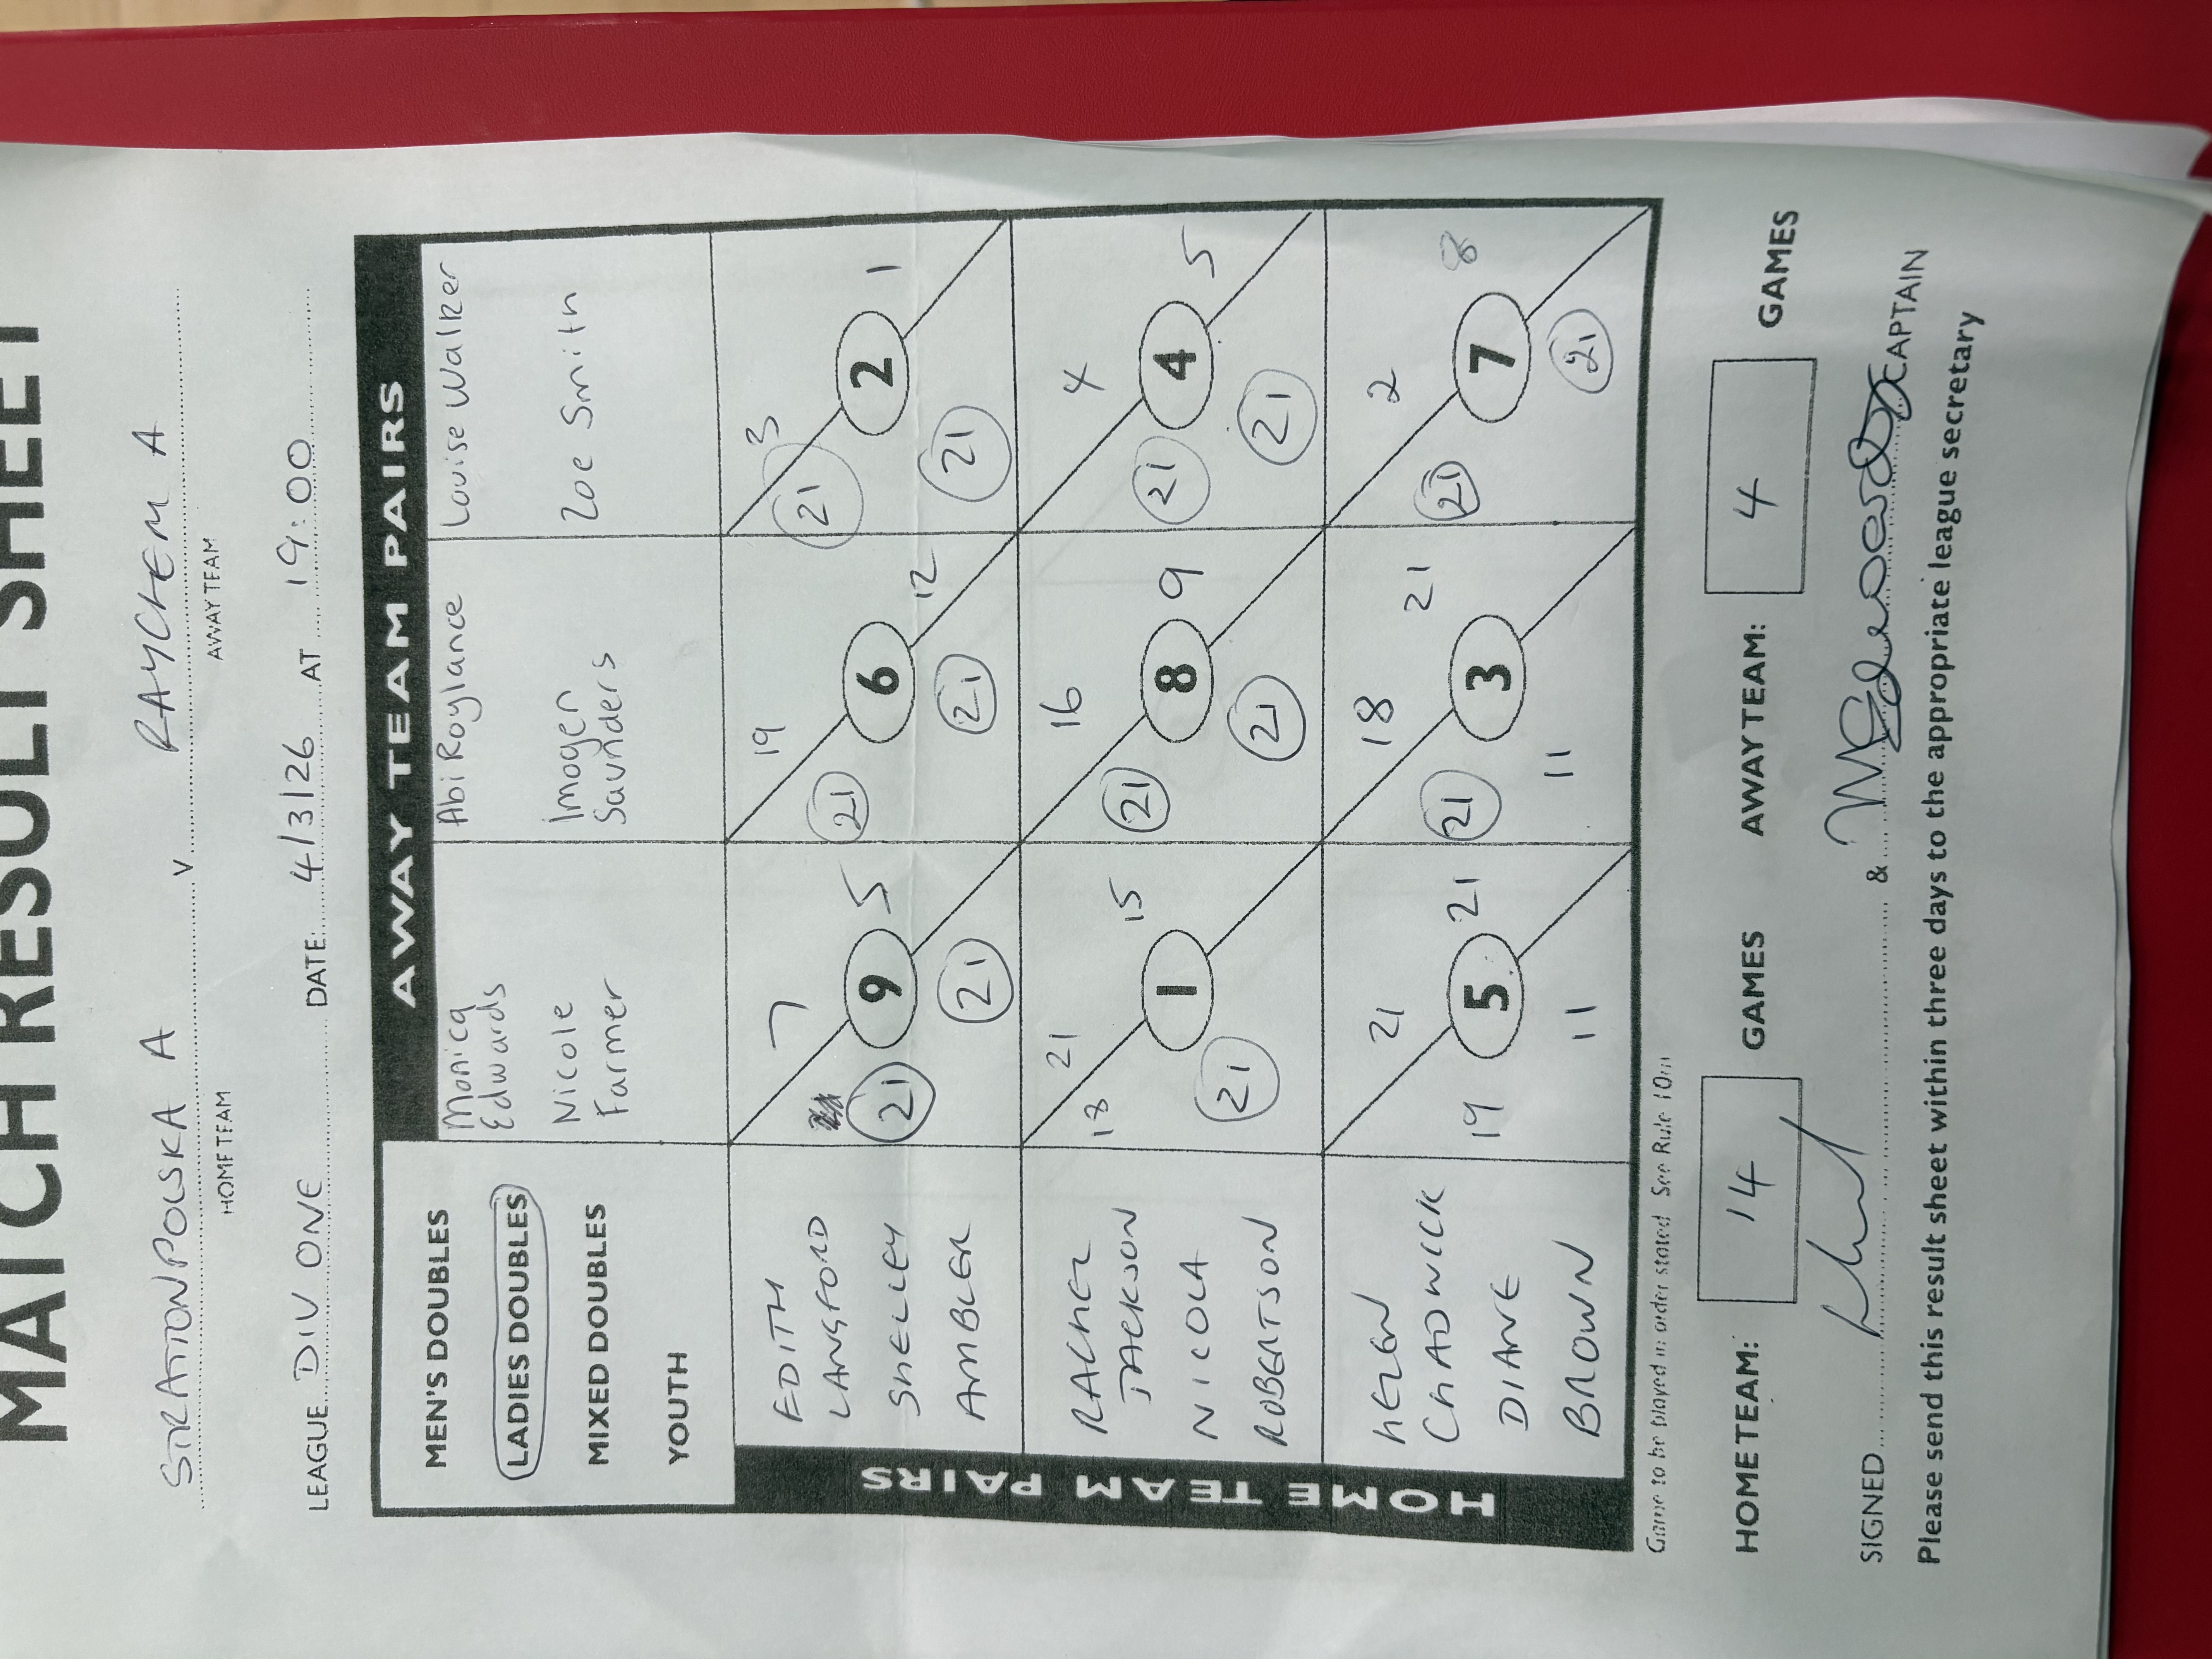 MATCH RESULT SHEET
STRATTONPOLSKA A v RAYCHEM A
HOME TEAM AWAY TEAM
LEAGUE DIV ONE DATE 4/3/26 AT 19:00
AWAY TEAM PAIRS
MEN'S DOUBLES
LADIES DOUBLES
MIXED DOUBLES
YOUTH
Monica
Edwards
Nicole
Farmer
Abi Roylance
Imogen
Saunders
Louise Walker
Zoe Smith
HOME TEAM PAIRS
EDITH
LANGFORD
SHELLEY
AMBLER
7
21 9 5
21
19
21 6 12
21
3
21 2 1
21
RACHEL
JACKSON
NICOLA
ROBERTSON
18 21
1 15
21
16
21 8 9
21
4
21 4 5
21
HELEN
CHADWICK
DIANE
BROWN
21
19 5 21
11
18 21
21 3
11
2
21 7 8
21
Game to be played in order stated See Rule 10m
HOME TEAM: 14 GAMES AWAY TEAM: 4 GAMES
SIGNED & CAPTAIN
Please send this result sheet within three days to the appropriate league secretary